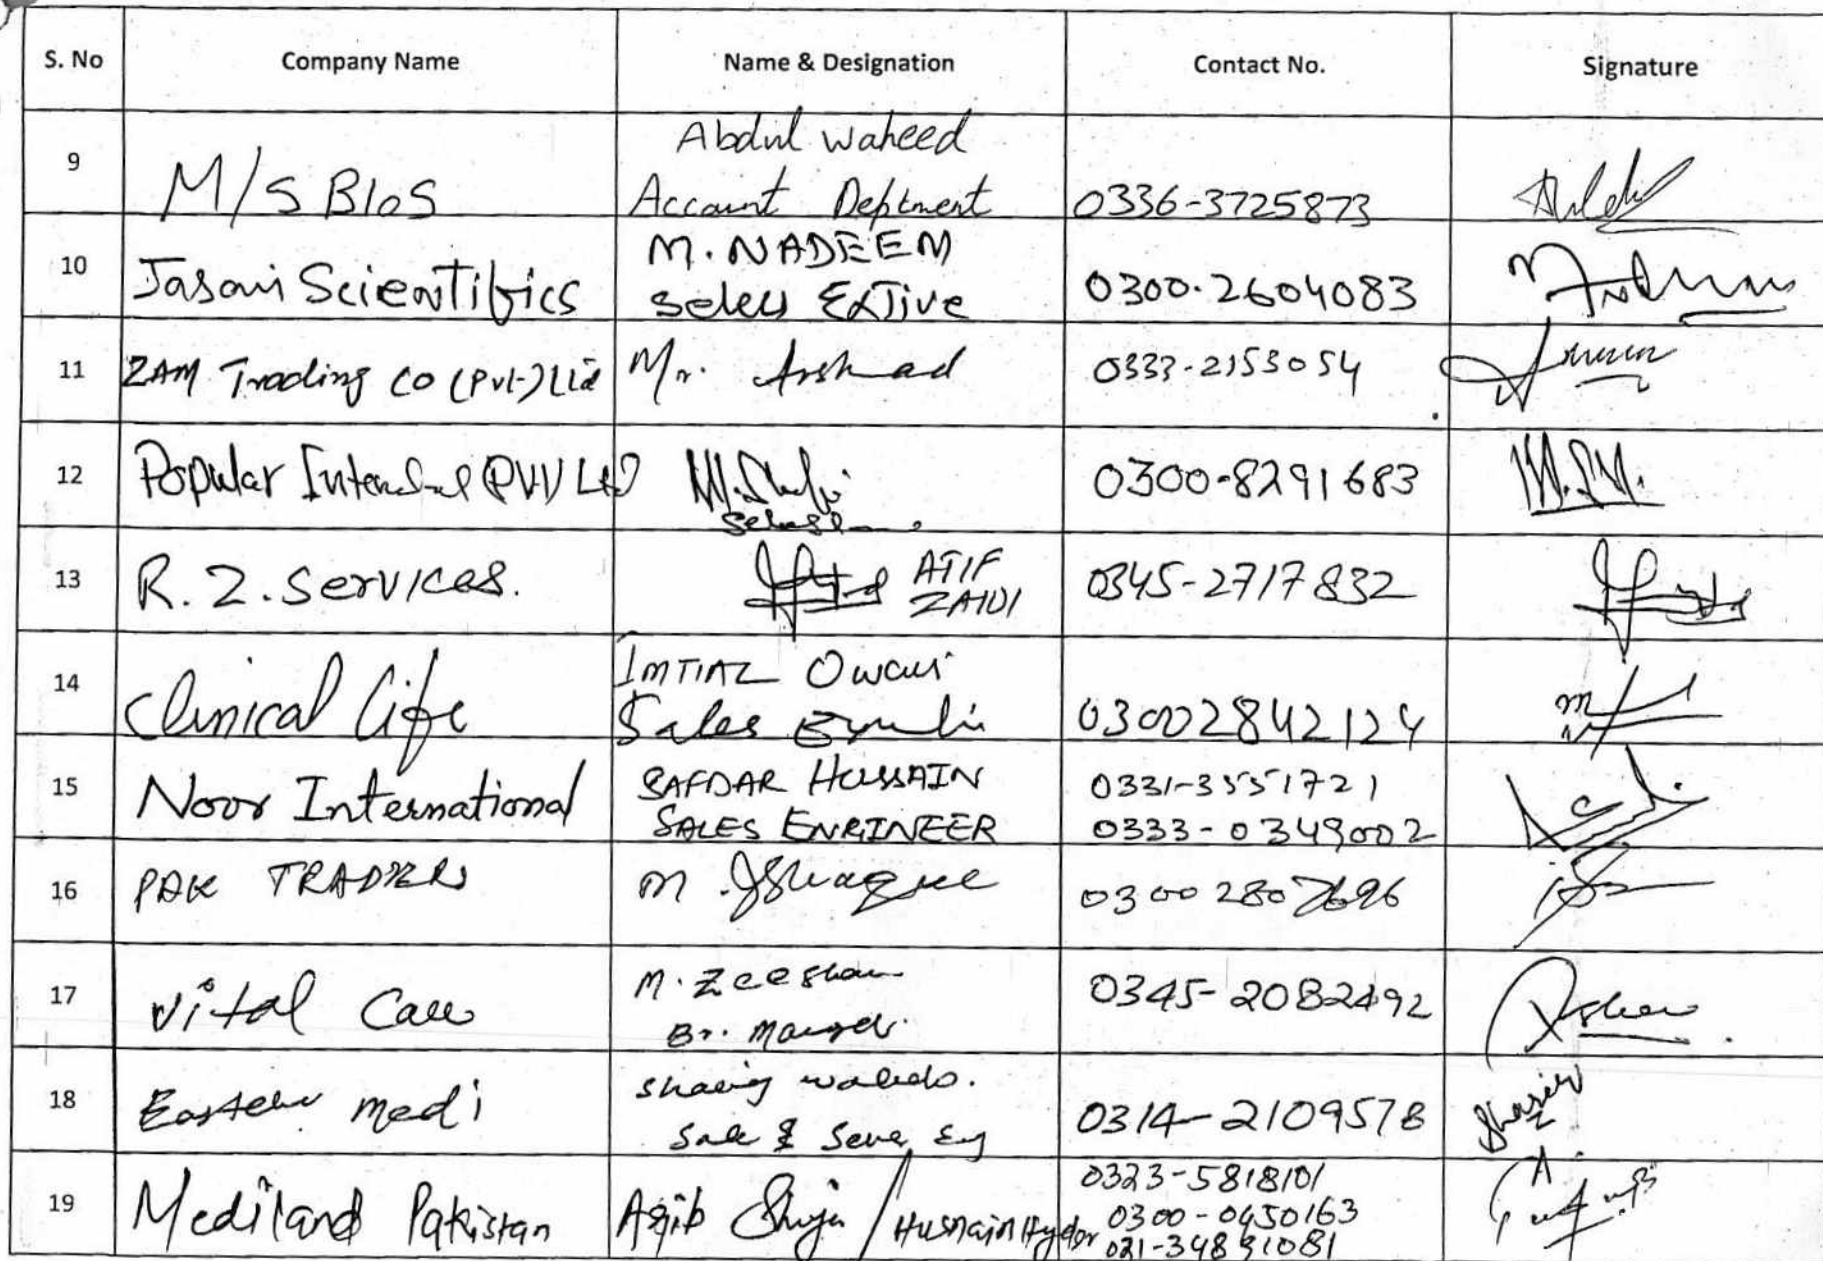 S. No Company Name Name & Designation Contact No. Signature
9 M/S BIOS Abdul Waheed
Account Deptment 0336-3725873
10 Jasani Scientifics M. NADEEM
Seles EXTive 0300-2604083
11 ZAM Trading CO (Pvt) Ltd Mr. Arshad 0333-2153054
12 Popular (PVT) Ltd 0300-8291683
13 R.Z. Services. ATIF
ZAIDI 0345-2717832
14 Clinical life IMTIAZ
Sales 03002842124
15 Noor International SAFDAR HUSSAIN 0331-3551721
SALES ENGINEER 0333-0349002
16 PAK TRADERS M. Ishaque 0300 2807696
17 Vital Care M. Zeeshan
Br. 0345-2082492
18 Eastern medi
Sale & 0314-2109578
19 Mediland Pakistan Aqib Shuja / Husnain Hyder 0323-5818101
0300-0450163
021-34891081